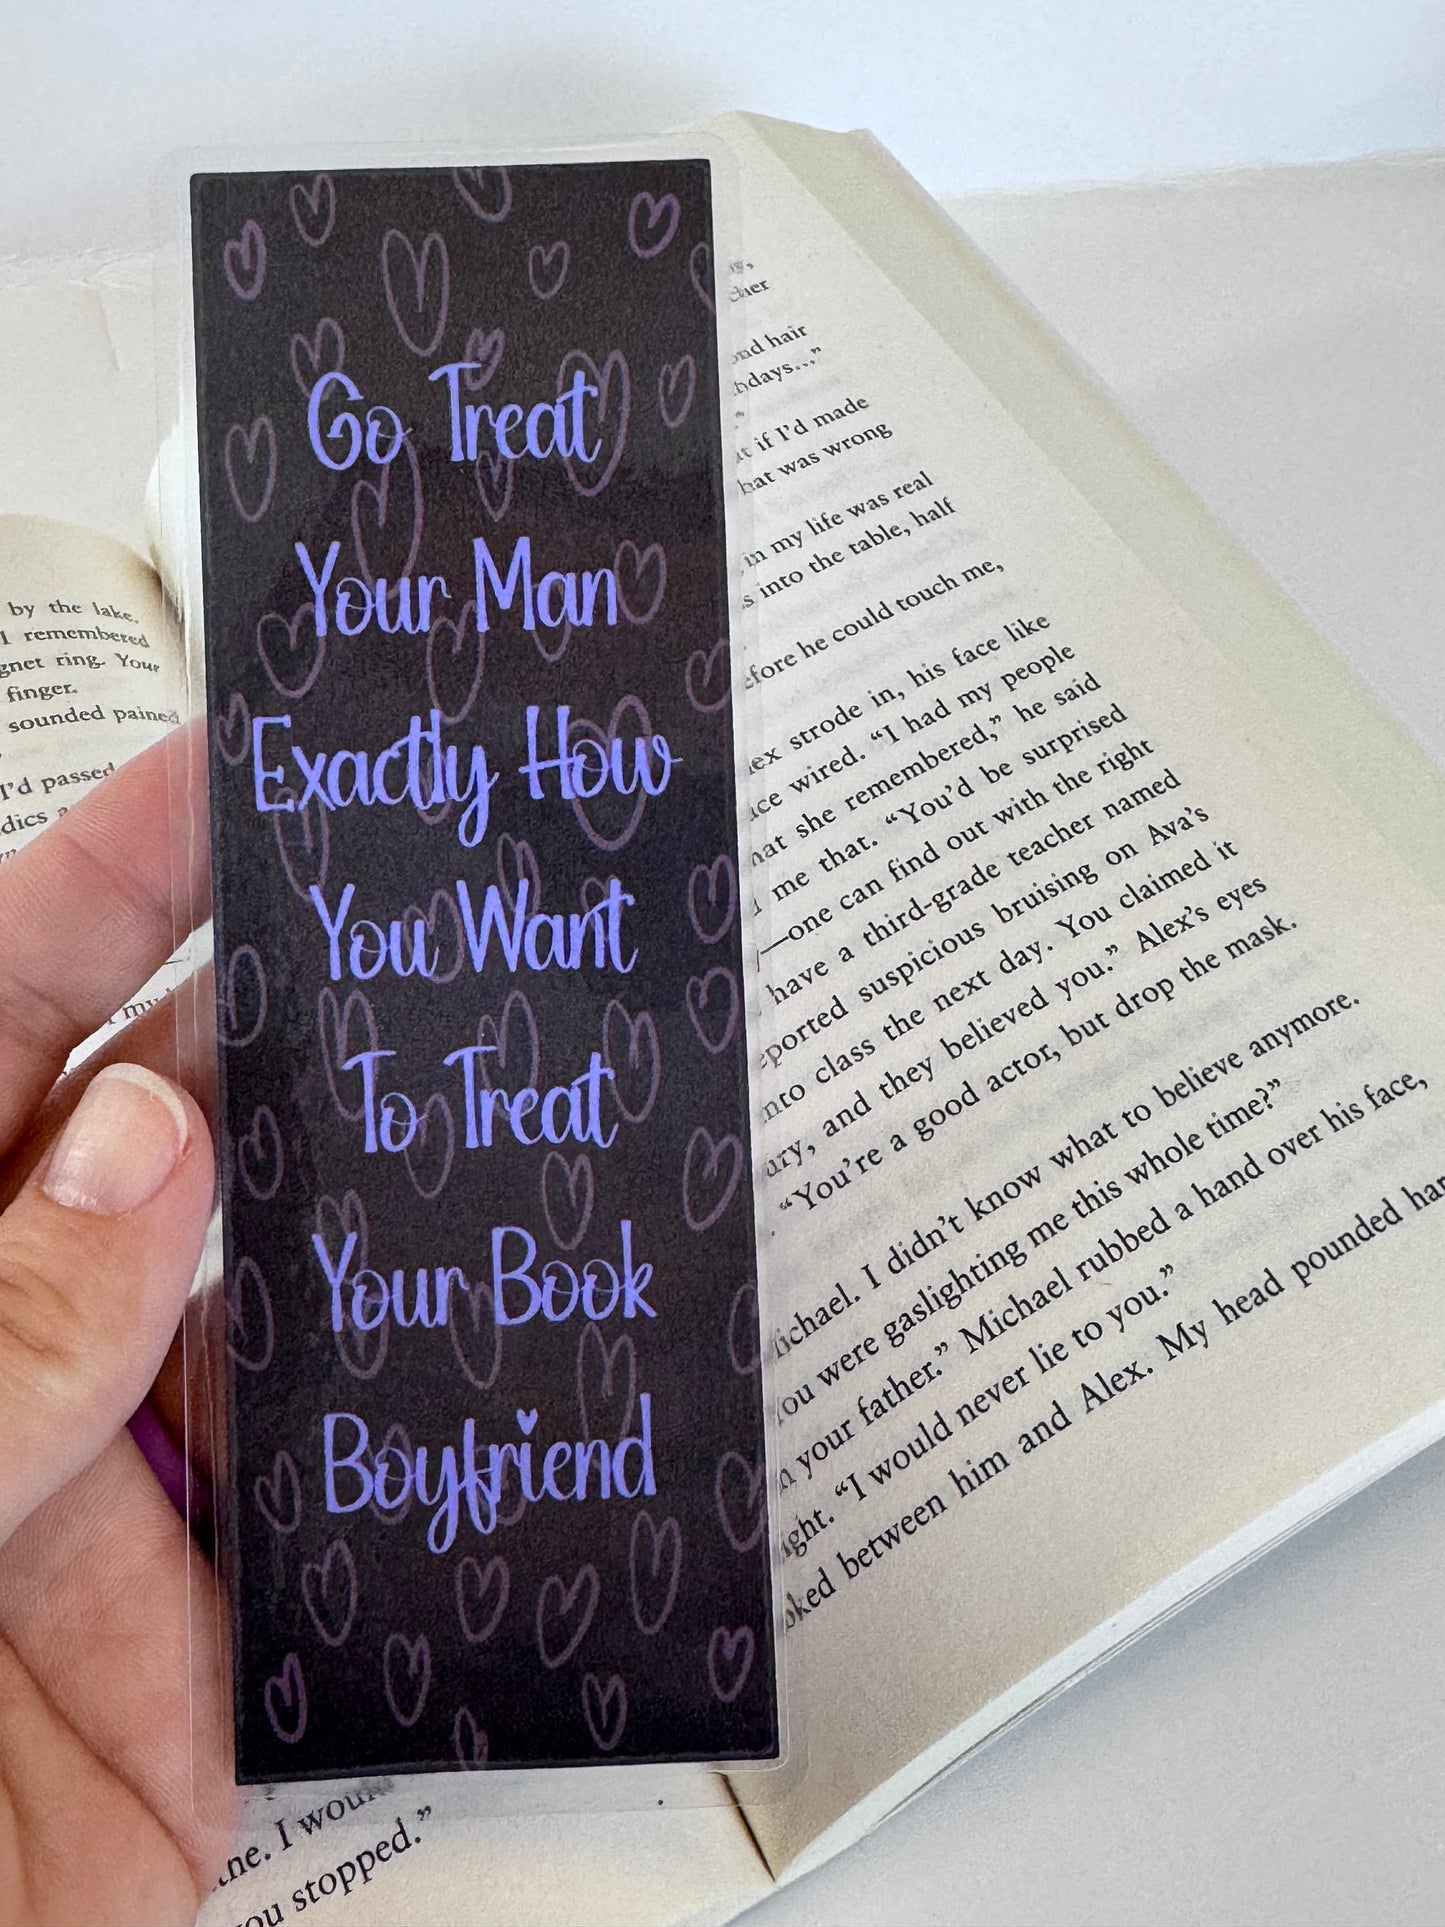 Go Treat
Your Man
Exactly How
You Want
To Treat
Your Book
Boyfriend
by the lake.
I remembered
ring. Your
finger.
sounded pained
I'd passed
hair
if I'd made
was wrong
in my life was real
into the table, half
he could touch me,
strode in, his face like
wired. "I had my people
she remembered," he said
me that. "You'd be surprised
—one can find out with the right
have a third-grade teacher named
suspicious bruising on Ava's
class the next day. You claimed it
and they believed you." Alex's eyes
"You're a good actor, but drop the mask.
I didn't know what to believe anymore.
were gaslighting me this whole time?"
your father." Michael rubbed a hand over his face,
"I would never lie to you."
between him and Alex. My head pounded
I
stopped."